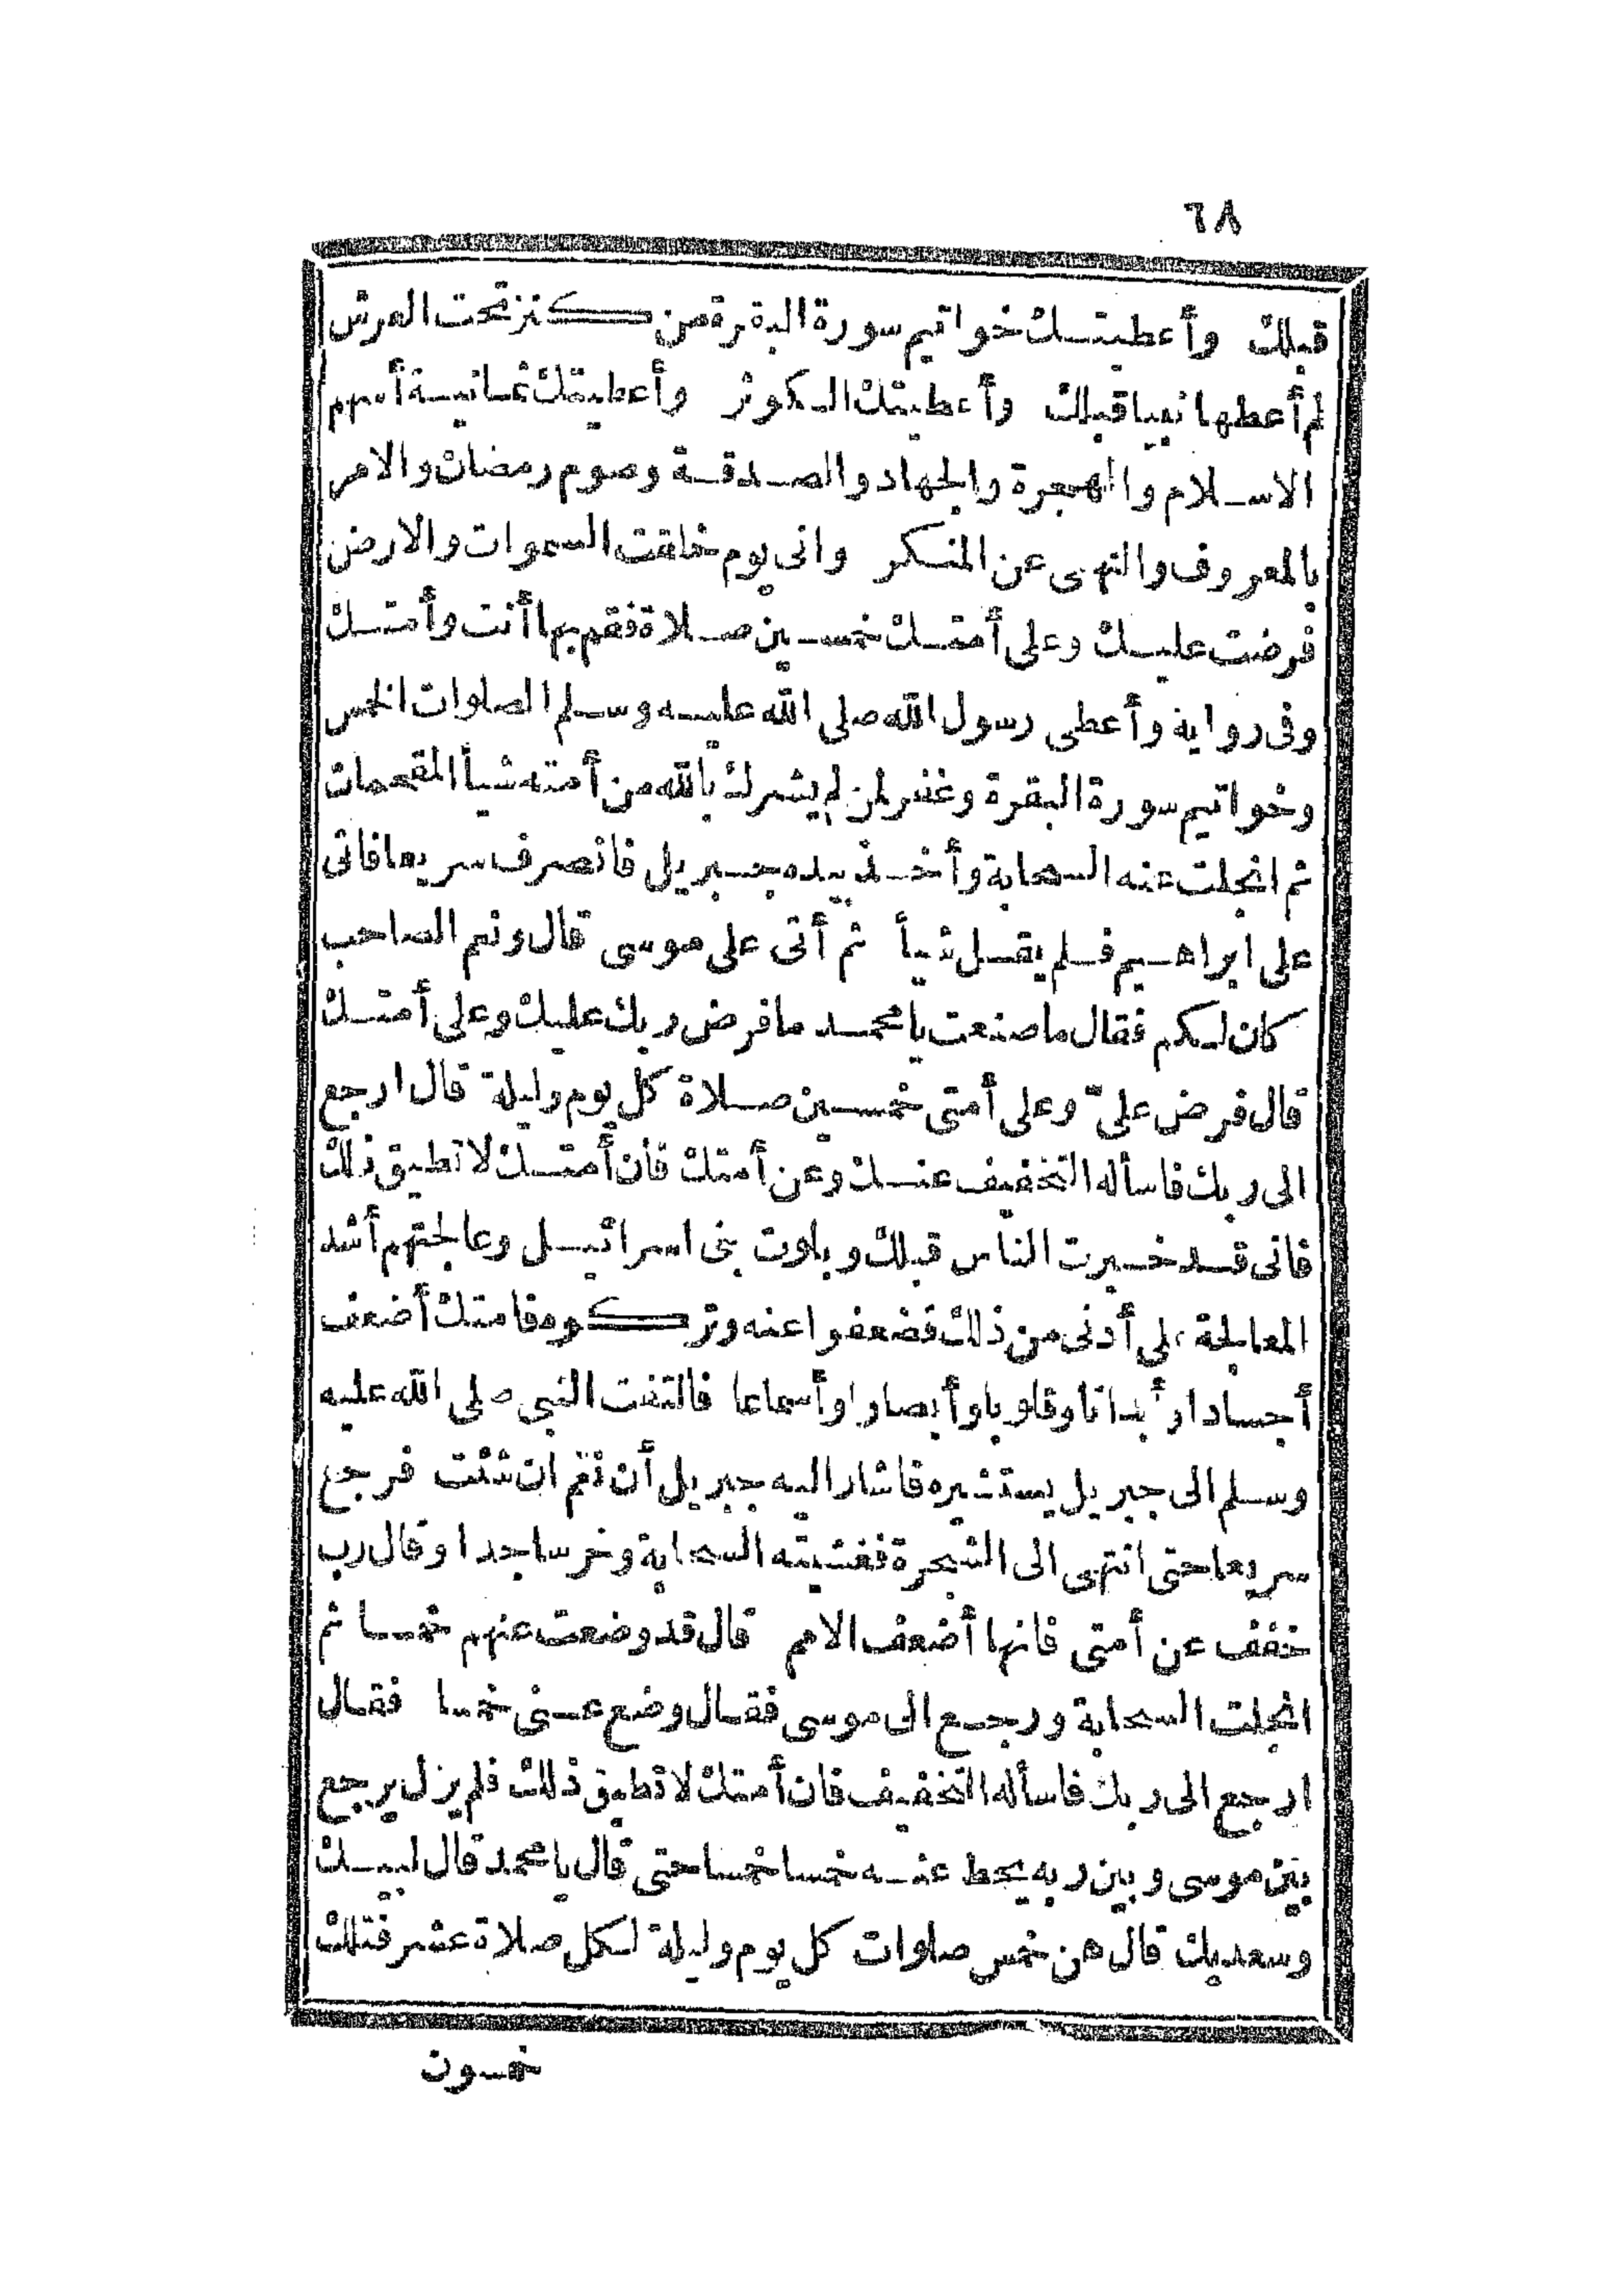 ٦٨
قبلك وأعطيتك خواتيم سورة البقرة من كنز تحت العرش
لم أعطها نبيا قبلك وأعطيتك الكوثر وأعطيتك ثمانية أسهم
الاسلام والهجرة والجهاد والصدقة وصوم رمضان والامر
بالمعروف والنهى عن المنكر وانى يوم خلقت السموات والارض
فرضت عليك وعلى أمتك خمسين صلاة فقم بها أنت وأمتك
وفى رواية وأعطى رسول الله صلى الله عليه وسلم الصلوات الخمس
وخواتيم سورة البقرة وغفر لمن لم يشرك بالله من أمته شيأ المقحمات
ثم انجلت عنه السحابة وأخذ بيده جبريل فانصرف سريعا فاتى
على ابراهيم فلم يقل شيأ ثم أتى على موسى قال ونعم الصاحب
كان لكم فقال ما صنعت يا محمد ما فرض ربك عليك وعلى أمتك
قال فرض علىّ وعلى أمتى خمسين صلاة كل يوم وليلة قال ارجع
الى ربك فاسأله التخفيف عنك وعن أمتك فان أمتك لا تطيق ذلك
فانى قد خبرت الناس قبلك وبلوت بنى اسرائيل وعالجتهم أشد
المعالجة على أدنى من ذلك فضعفوا عنه وتركوه فامتك أضعف
أجسادا وأبدانا وقلوبا وأبصارا وأسماعا فالتفت النبى صلى الله عليه
وسلم الى جبريل يستشيره فاشار اليه جبريل أن نعم ان شئت فرجع
سريعا حتى انتهى الى الشجرة فغشيته السحابة وخر ساجدا وقال رب
خفف عن أمتى فانها أضعف الامم قال قد وضعت عنهم خمسا ثم
انجلت السحابة ورجع الى موسى فقال وضع عنى خمسا فقال
ارجع الى ربك فاسأله التخفيف فان أمتك لا تطيق ذلك فلم يزل يرجع
بين موسى وبين ربه يحط عنه خمسا خمسا حتى قال يا محمد قال لبيك
وسعديك قال هن خمس صلوات كل يوم وليلة لكل صلاة عشر فتلك
خمسون